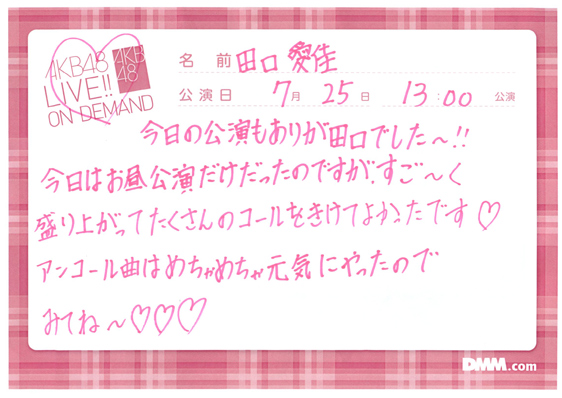 AKB48
LIVE!!
ON DEMAND
AKB
48
名前 田口 愛佳
公演日 7月 25日 13:00 公演
今日の公演もありが田口でした〜!!
今日はお昼公演だけだったのですが、すご〜く
盛り上がってたくさんのコールをきけてよかったです♡
アンコール曲はめちゃめちゃ元気にやったので
みてね〜♡♡♡
DMM.com